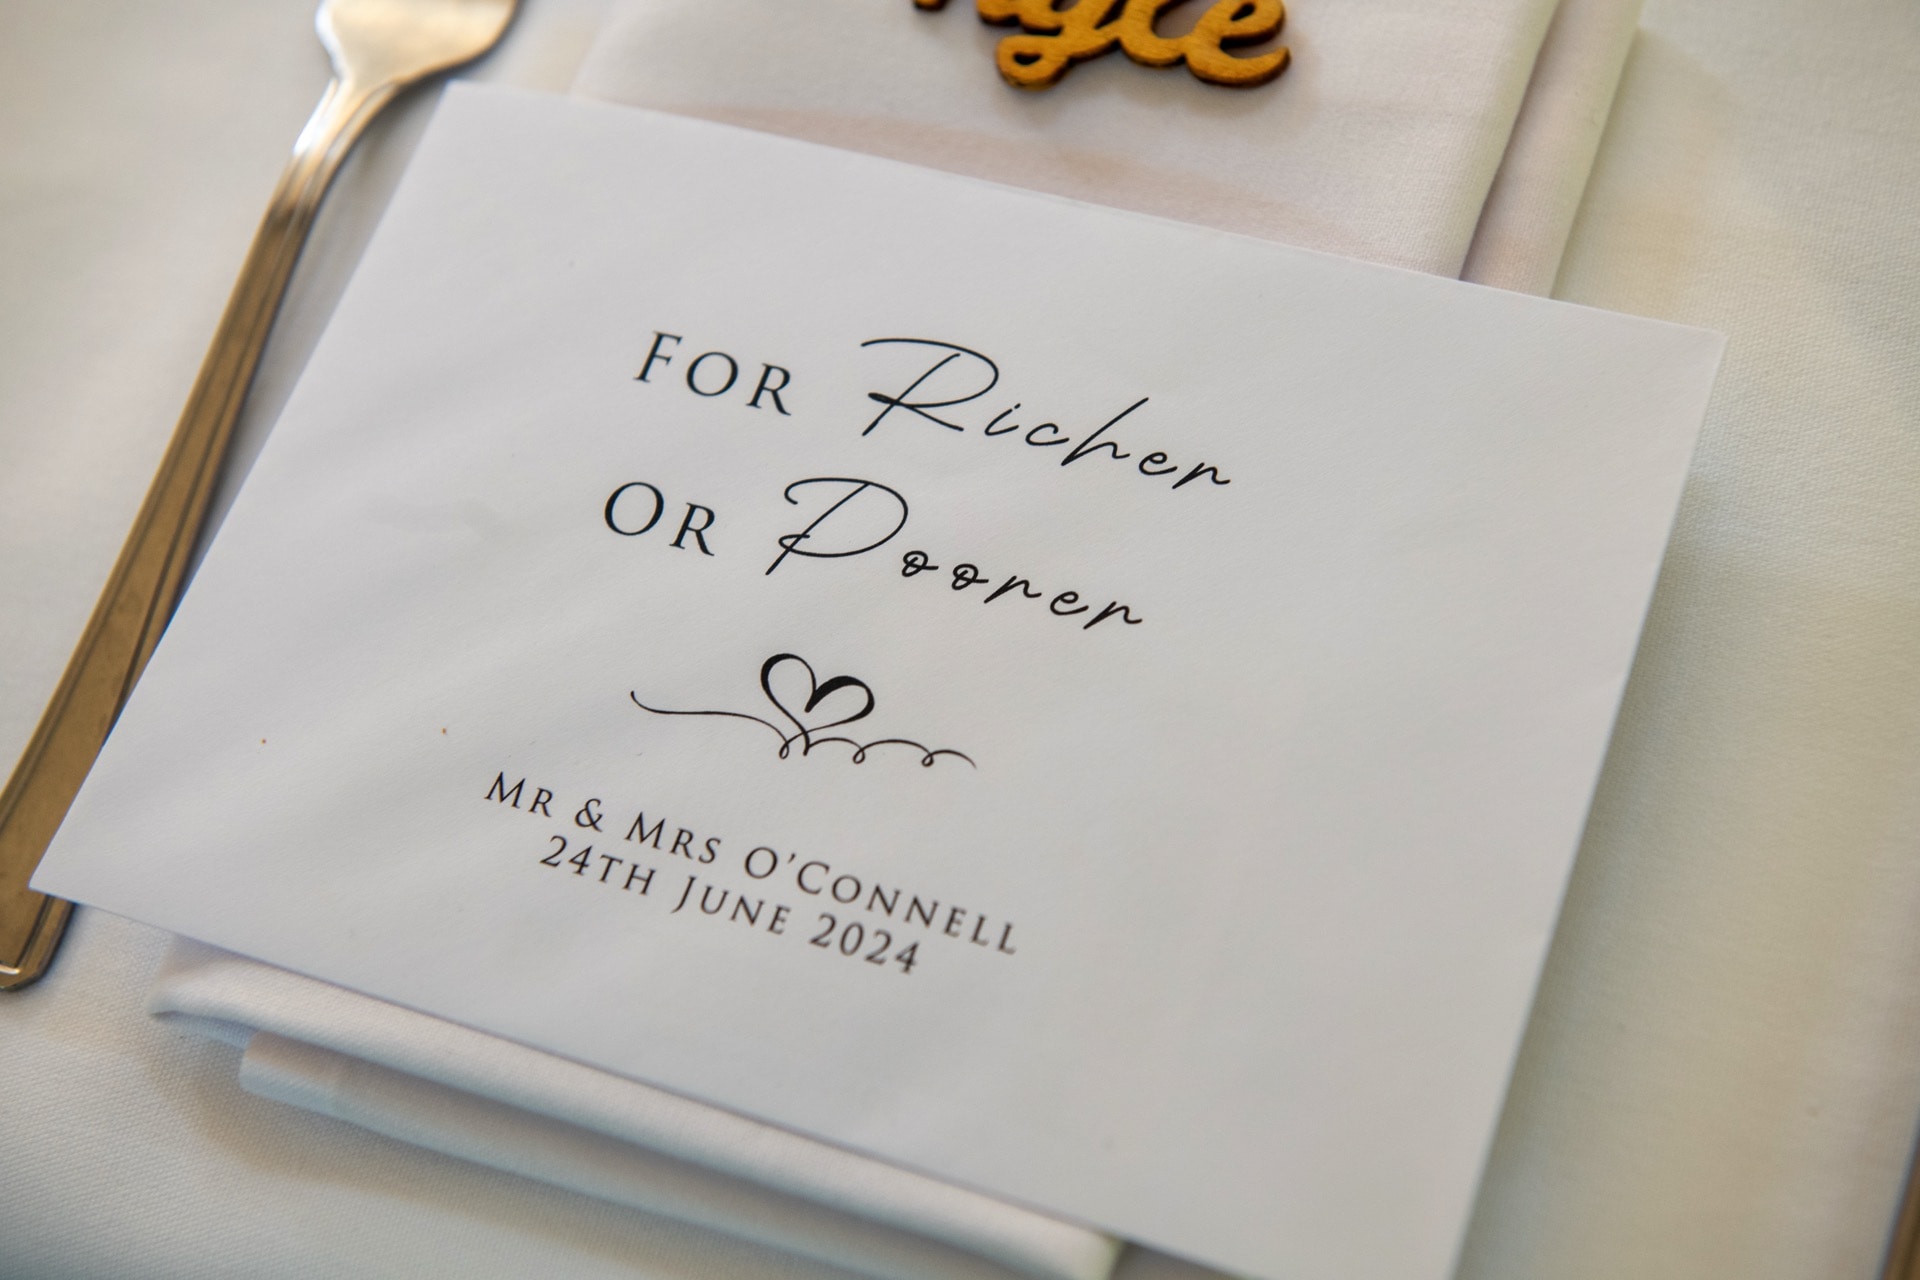 For Richer
Or Poorer
Mr & Mrs O'Connell
24th June 2024